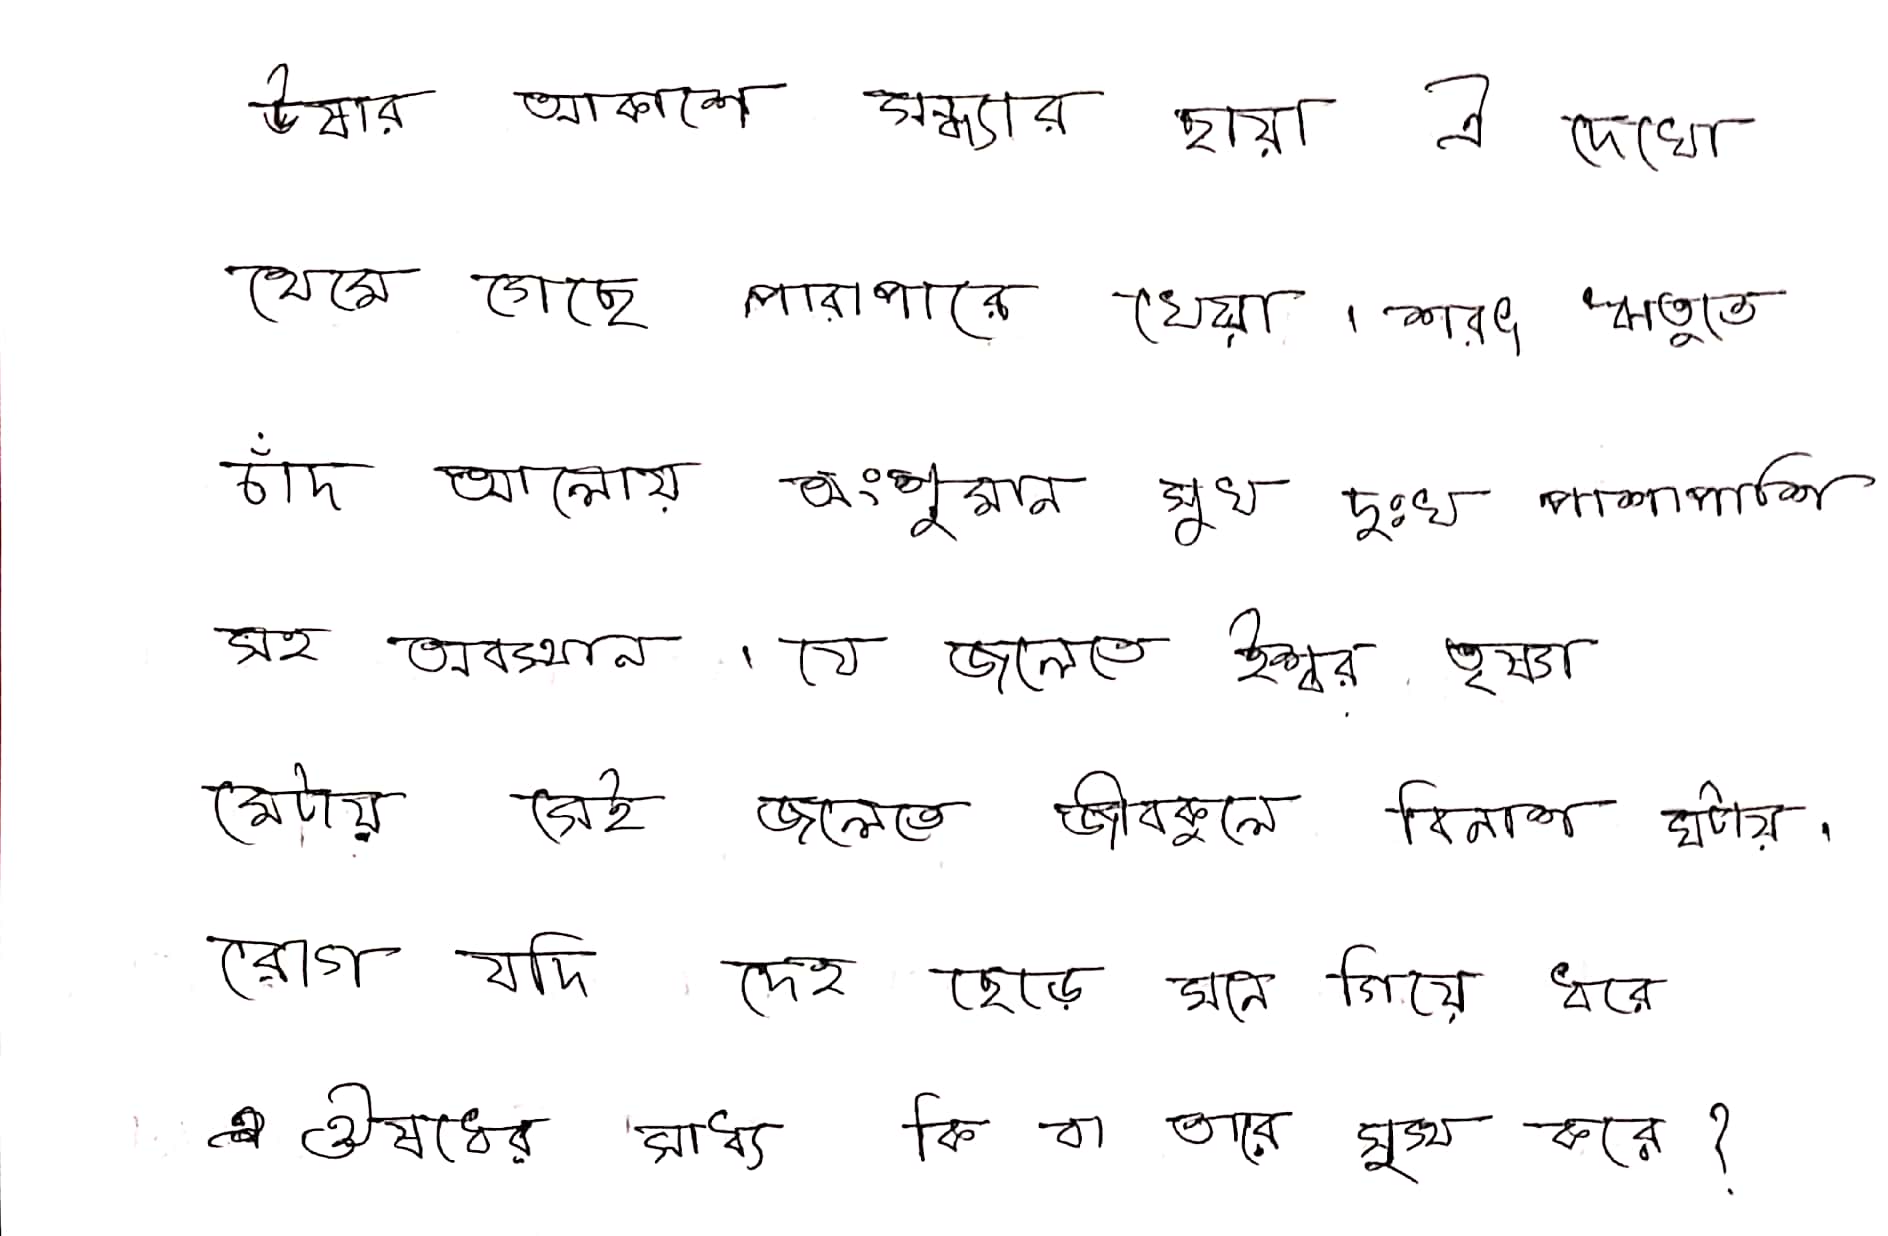 উষার আকাশে সন্ধ্যার ছায়া ঐ দেখো
থেমে গেছে পারাপারে খেয়া । শরৎ ঋতুতে
চাঁদ আলোয় অংশুমান সুখ দুঃখ পাশাপাশি
সহ অবস্থান । যে জলেতে ঈশ্বর তৃষ্ণা
মেটায় সেই জলেতে জীবকুলে বিনাশ ঘটায় ।
রোগ যদি দেহ ছেড়ে মনে গিয়ে ধরে
ঔষধের সাধ্য কি বা তারে সুস্থ করে ?